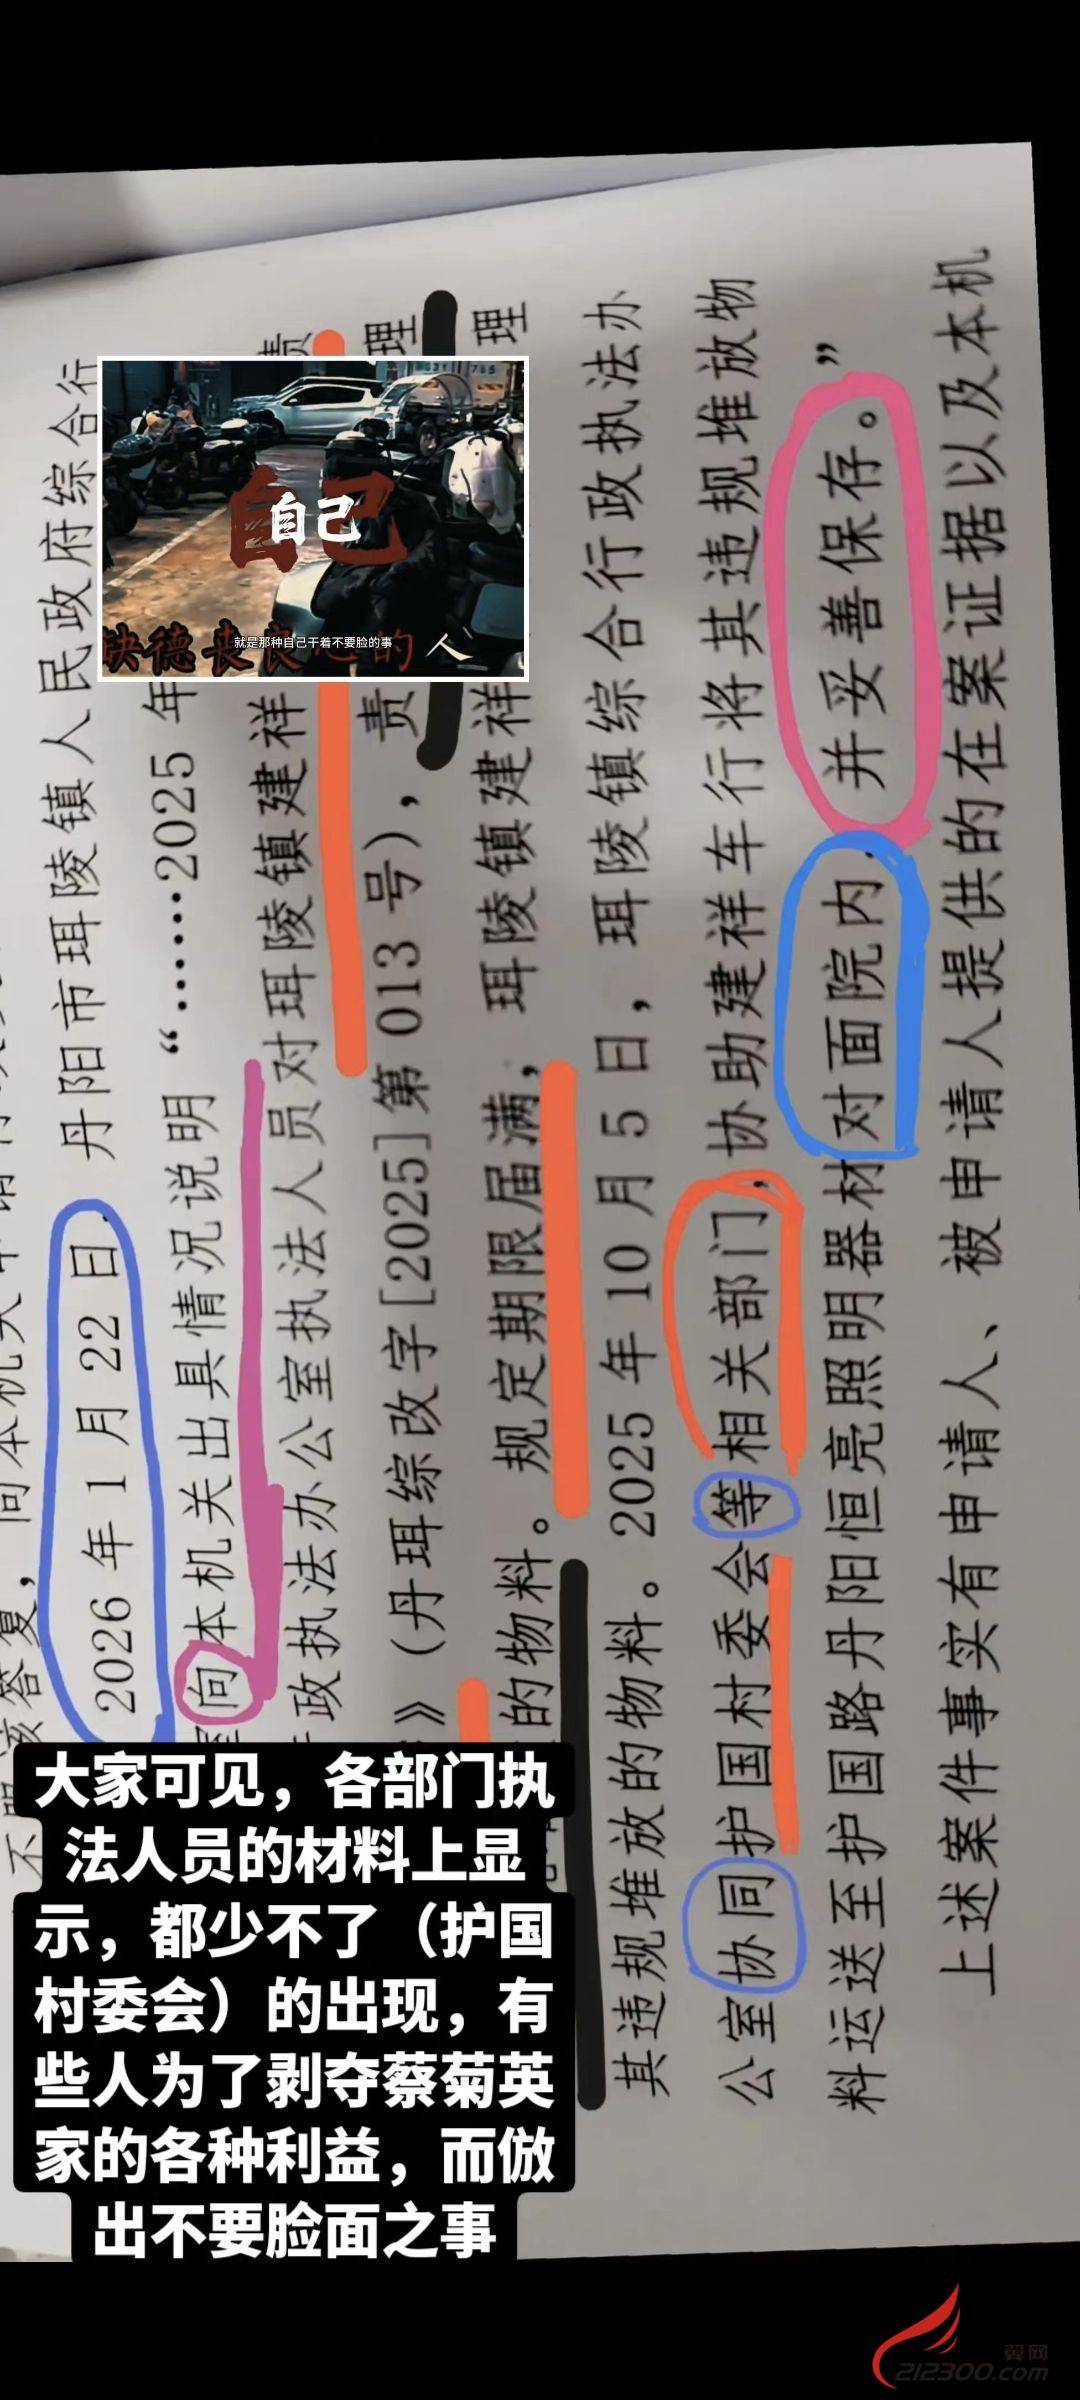 不服该答复，向本机关申请行
2026 年 1 月 22 日，丹阳市珥陵镇人民政府综合行
向本机关出具情况说明“……2025 年
政执法办公室执法人员对珥陵镇建祥
》（丹珥综改字[2025]第 013 号），责 理
的物料。规定期限届满，珥陵镇建祥 理
其违规堆放的物料。2025 年 10 月 5 日，珥陵镇综合行政执法办
公室协同护国村委会等相关部门，协助建祥车行将其违规堆放物
料运送至护国路丹阳恒亮照明器材对面院内，并妥善保存。”
上述案件事实有申请人、被申请人提供的在案证据以及本机
自己
自己
缺德丧良心的人
就是那种自己干着不要脸的事
大家可见，各部门执
法人员的材料上显
示，都少不了（护国
村委会）的出现，有
些人为了剥夺蔡菊英
家的各种利益，而倣
出不要脸面之事
翼网
212300.com